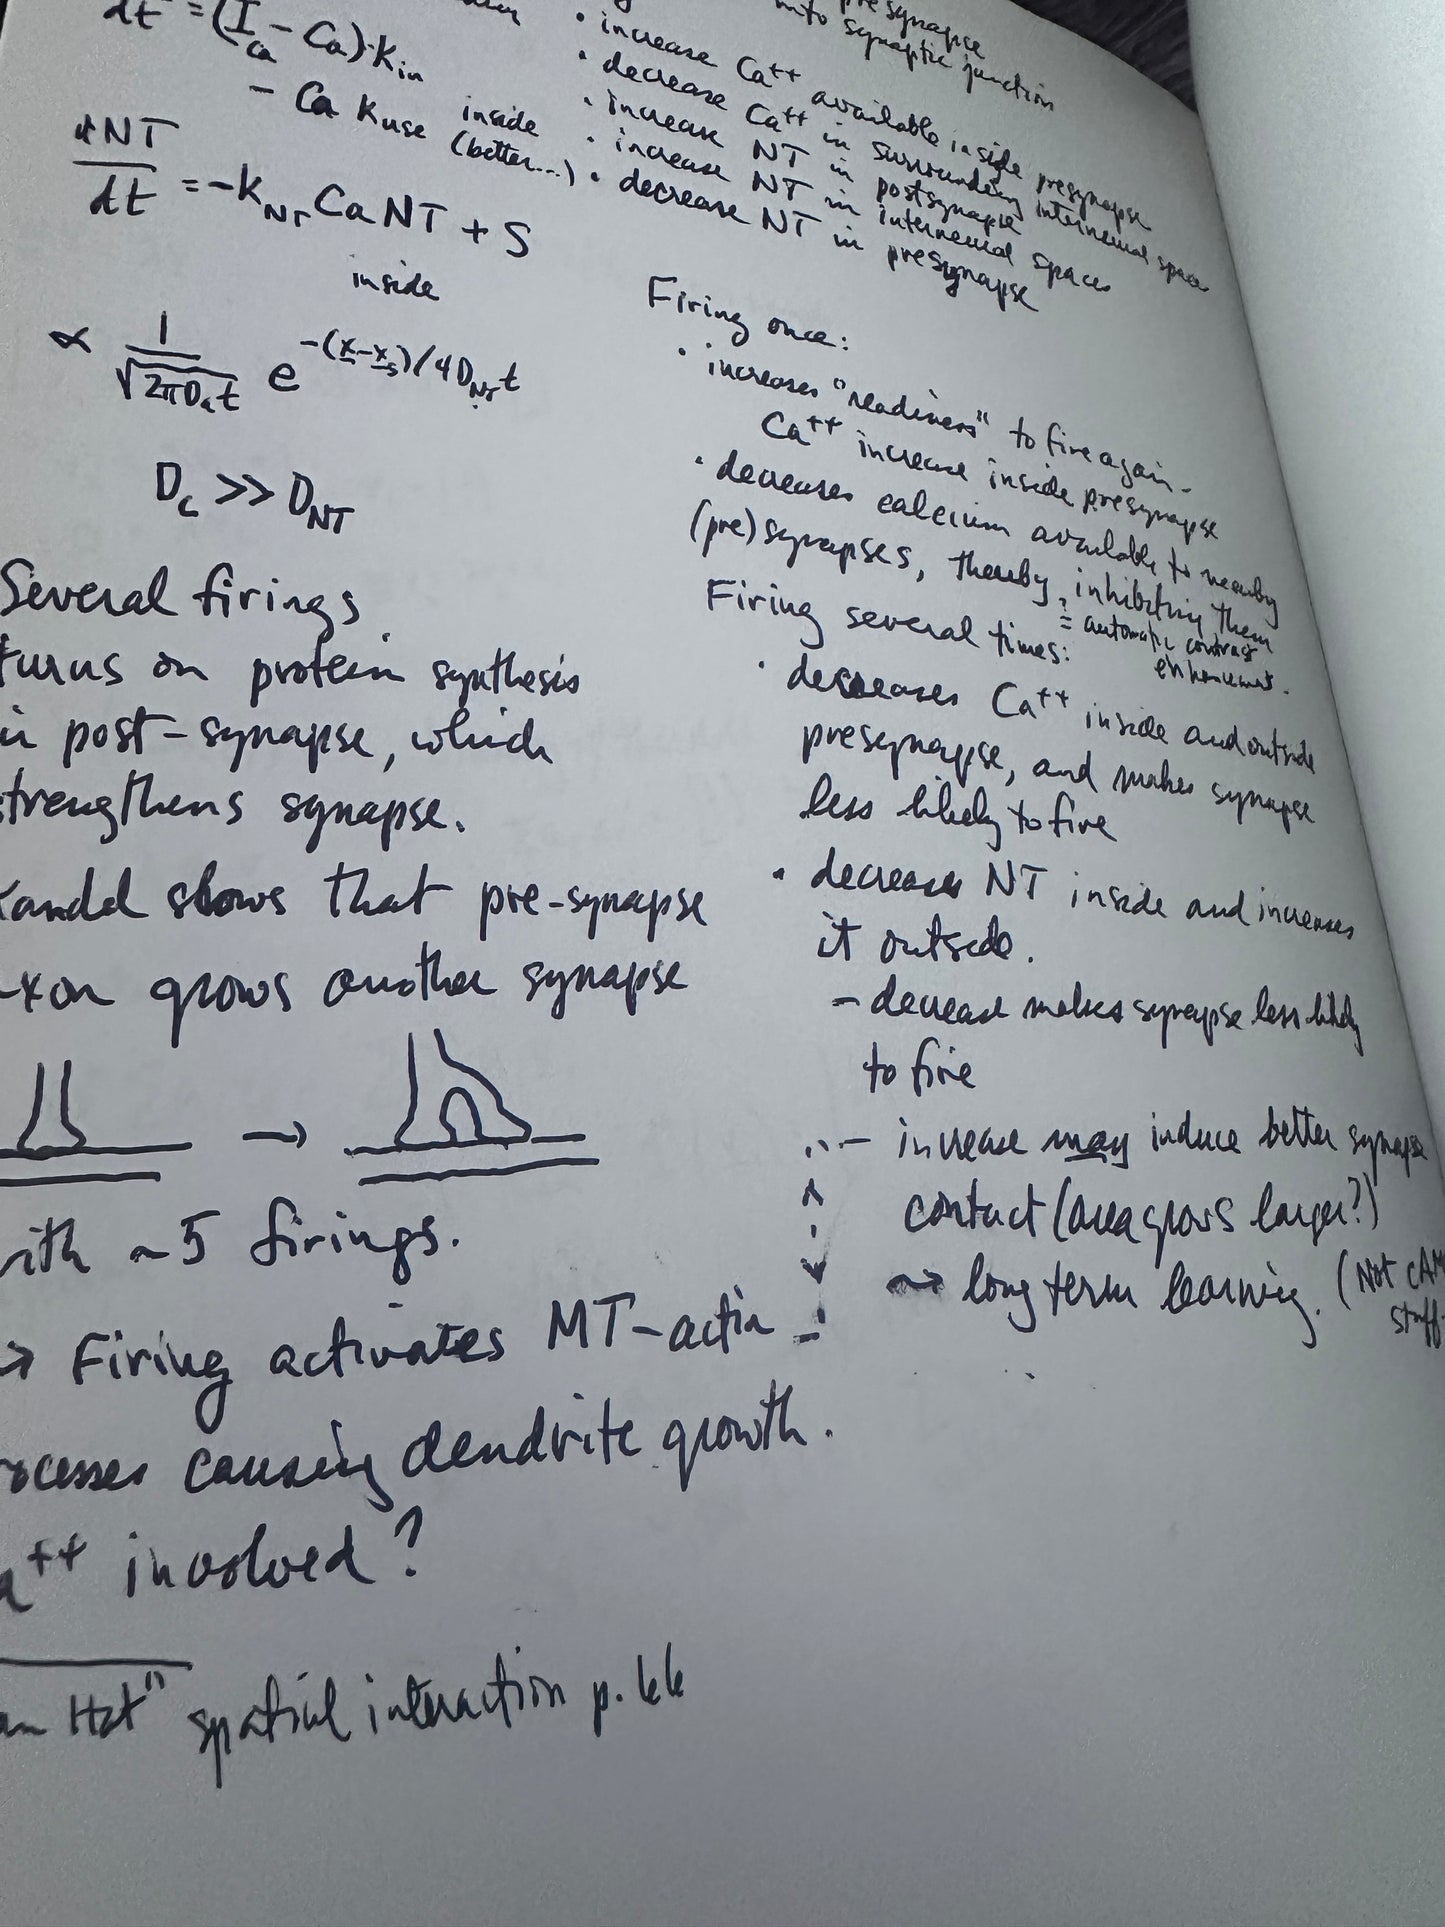 dt = (I_Ca - Ca)·K_in
- Ca K_use inside (better...)
dNT/dt = -K_NT Ca NT + S
inside
∝ 1/√(2πD_c t) e^(-(x-x_s)/4D_NT t)
D_c >> D_NT
Several firings
turns on protein synthesis
in post-synapse, which
strengthens synapse.
Kandel shows that pre-synapse
axon grows another synapse
→
with ~5 firings.
→ Firing activates MT-actin
processes causing dendrite growth.
Ca++ involved?
Hat" spatial interaction p. 66
presynapse
into synaptic junction
• increase Ca++ available inside presynapse
• decrease Ca++ in surrounding interneural space
• increase NT in postsynapse
• increase NT in interneural spaces
• decrease NT in presynapse
Firing once:
• increases "readiness" to fire again.
Ca++ increase inside presynapse
• decreases calcium available to nearby
(pre)synapses, thereby inhibiting them
= automatic contrast
enhancement.
Firing several times:
• decreases Ca++ inside and outside
presynapse, and makes synapse
less likely to fire
• decreases NT inside and increases
it outside.
- decrease makes synapse less likely
to fire
- increase may induce better synapse
contact (area grows larger?)
⇝ long term learning. (Not cAM
stuff